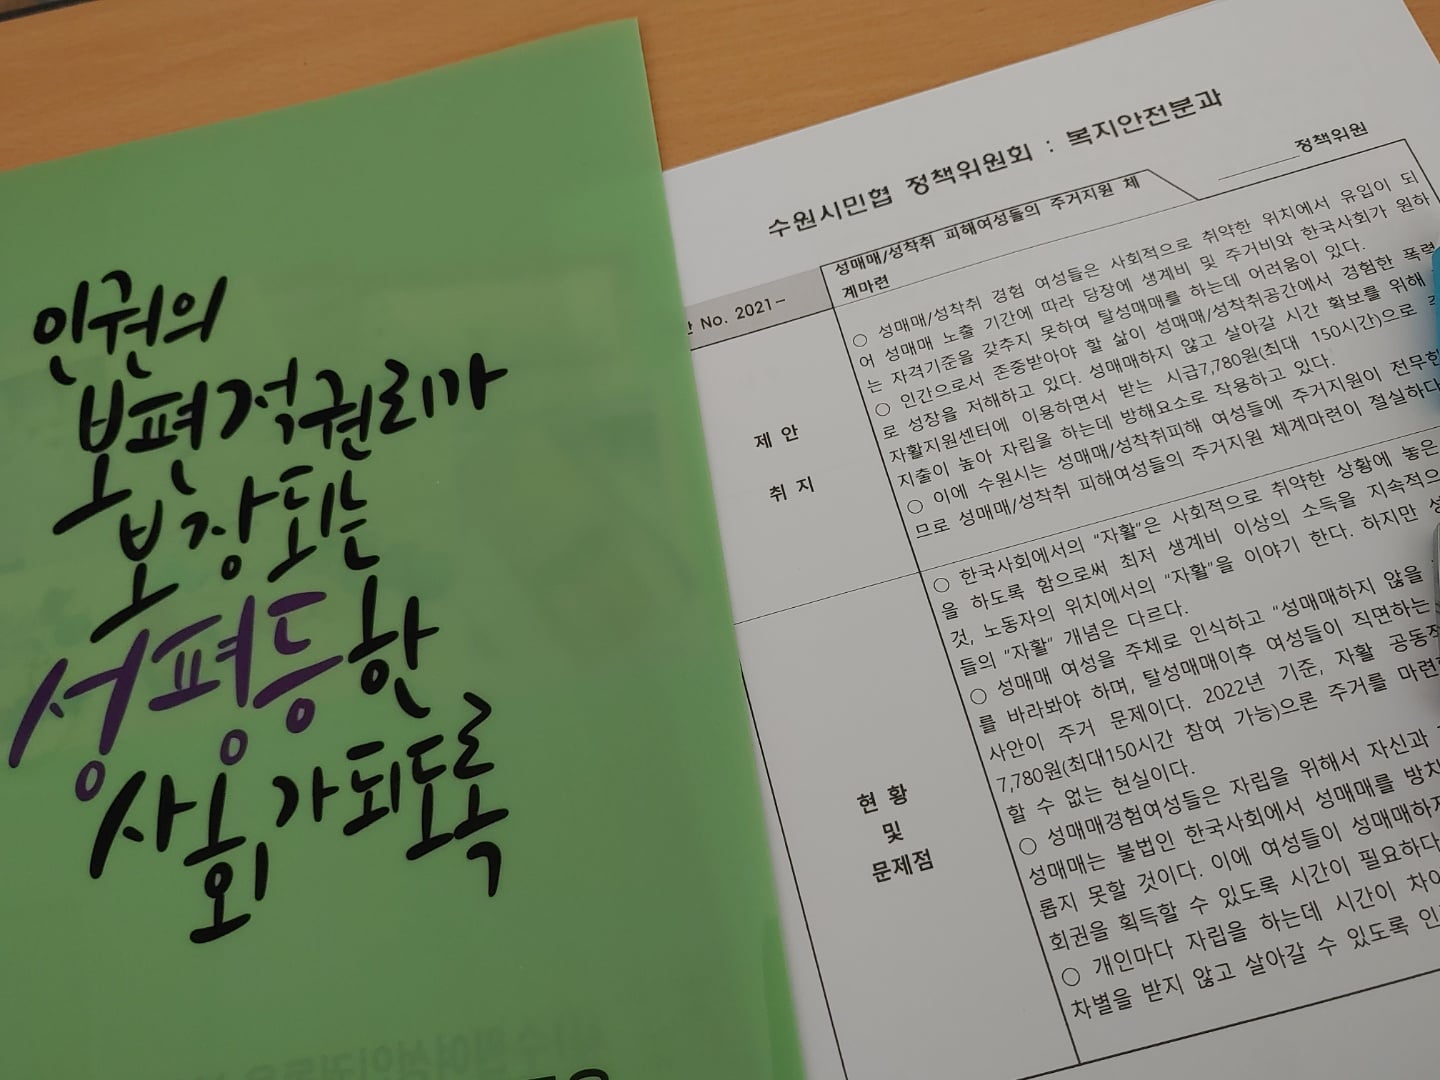 인권의
보편적권리가
보장되는
성평등한
사회가되도록
수원시민협 정책위원회 : 복지안전분과
정책위원
No. 2021-
성매매/성착취 피해여성들의 주거지원 체
계마련
제 안
취 지
○ 성매매/성착취 경험 여성들은 사회적으로 취약한 위치에서 유입이 되
어 성매매 노출 기간에 따라 당장에 생계비 및 주거비와 한국사회가 원하
는 자격기준을 갖추지 못하여 탈성매매를 하는데 어려움이 있다.
○ 인간으로서 존중받아야 할 삶이 성매매/성착취공간에서 경험한 폭력
로 성장을 저해하고 있다. 성매매하지 않고 살아갈 시간 확보를 위해
자활지원센터에 이용하면서 받는 시급7,780원(최대 150시간)으로
지출이 높아 자립을 하는데 방해요소로 작용하고 있다.
○ 이에 수원시는 성매매/성착취피해 여성들에 주거지원이 전무한
므로 성매매/성착취 피해여성들의 주거지원 체계마련이 절실하다
현 황
및
문제점
○ 한국사회에서의 "자활"은 사회적으로 취약한 상황에 놓은
을 하도록 함으로써 최저 생계비 이상의 소득을 지속적으
것, 노동자의 위치에서의 "자활"을 이야기 한다. 하지만 성
들의 "자활" 개념은 다르다.
○ 성매매 여성을 주체로 인식하고 "성매매하지 않을
를 바라봐야 하며, 탈성매매이후 여성들이 직면하는
사안이 주거 문제이다. 2022년 기준, 자활 공동작
7,780원(최대150시간 참여 가능)으론 주거를 마련
할 수 없는 현실이다.
○ 성매매경험여성들은 자립을 위해서 자신과
성매매는 불법인 한국사회에서 성매매를 방치
롭지 못할 것이다. 이에 여성들이 성매매하지
회권을 획득할 수 있도록 시간이 필요하다
○ 개인마다 자립을 하는데 시간이 차이
차별을 받지 않고 살아갈 수 있도록 인